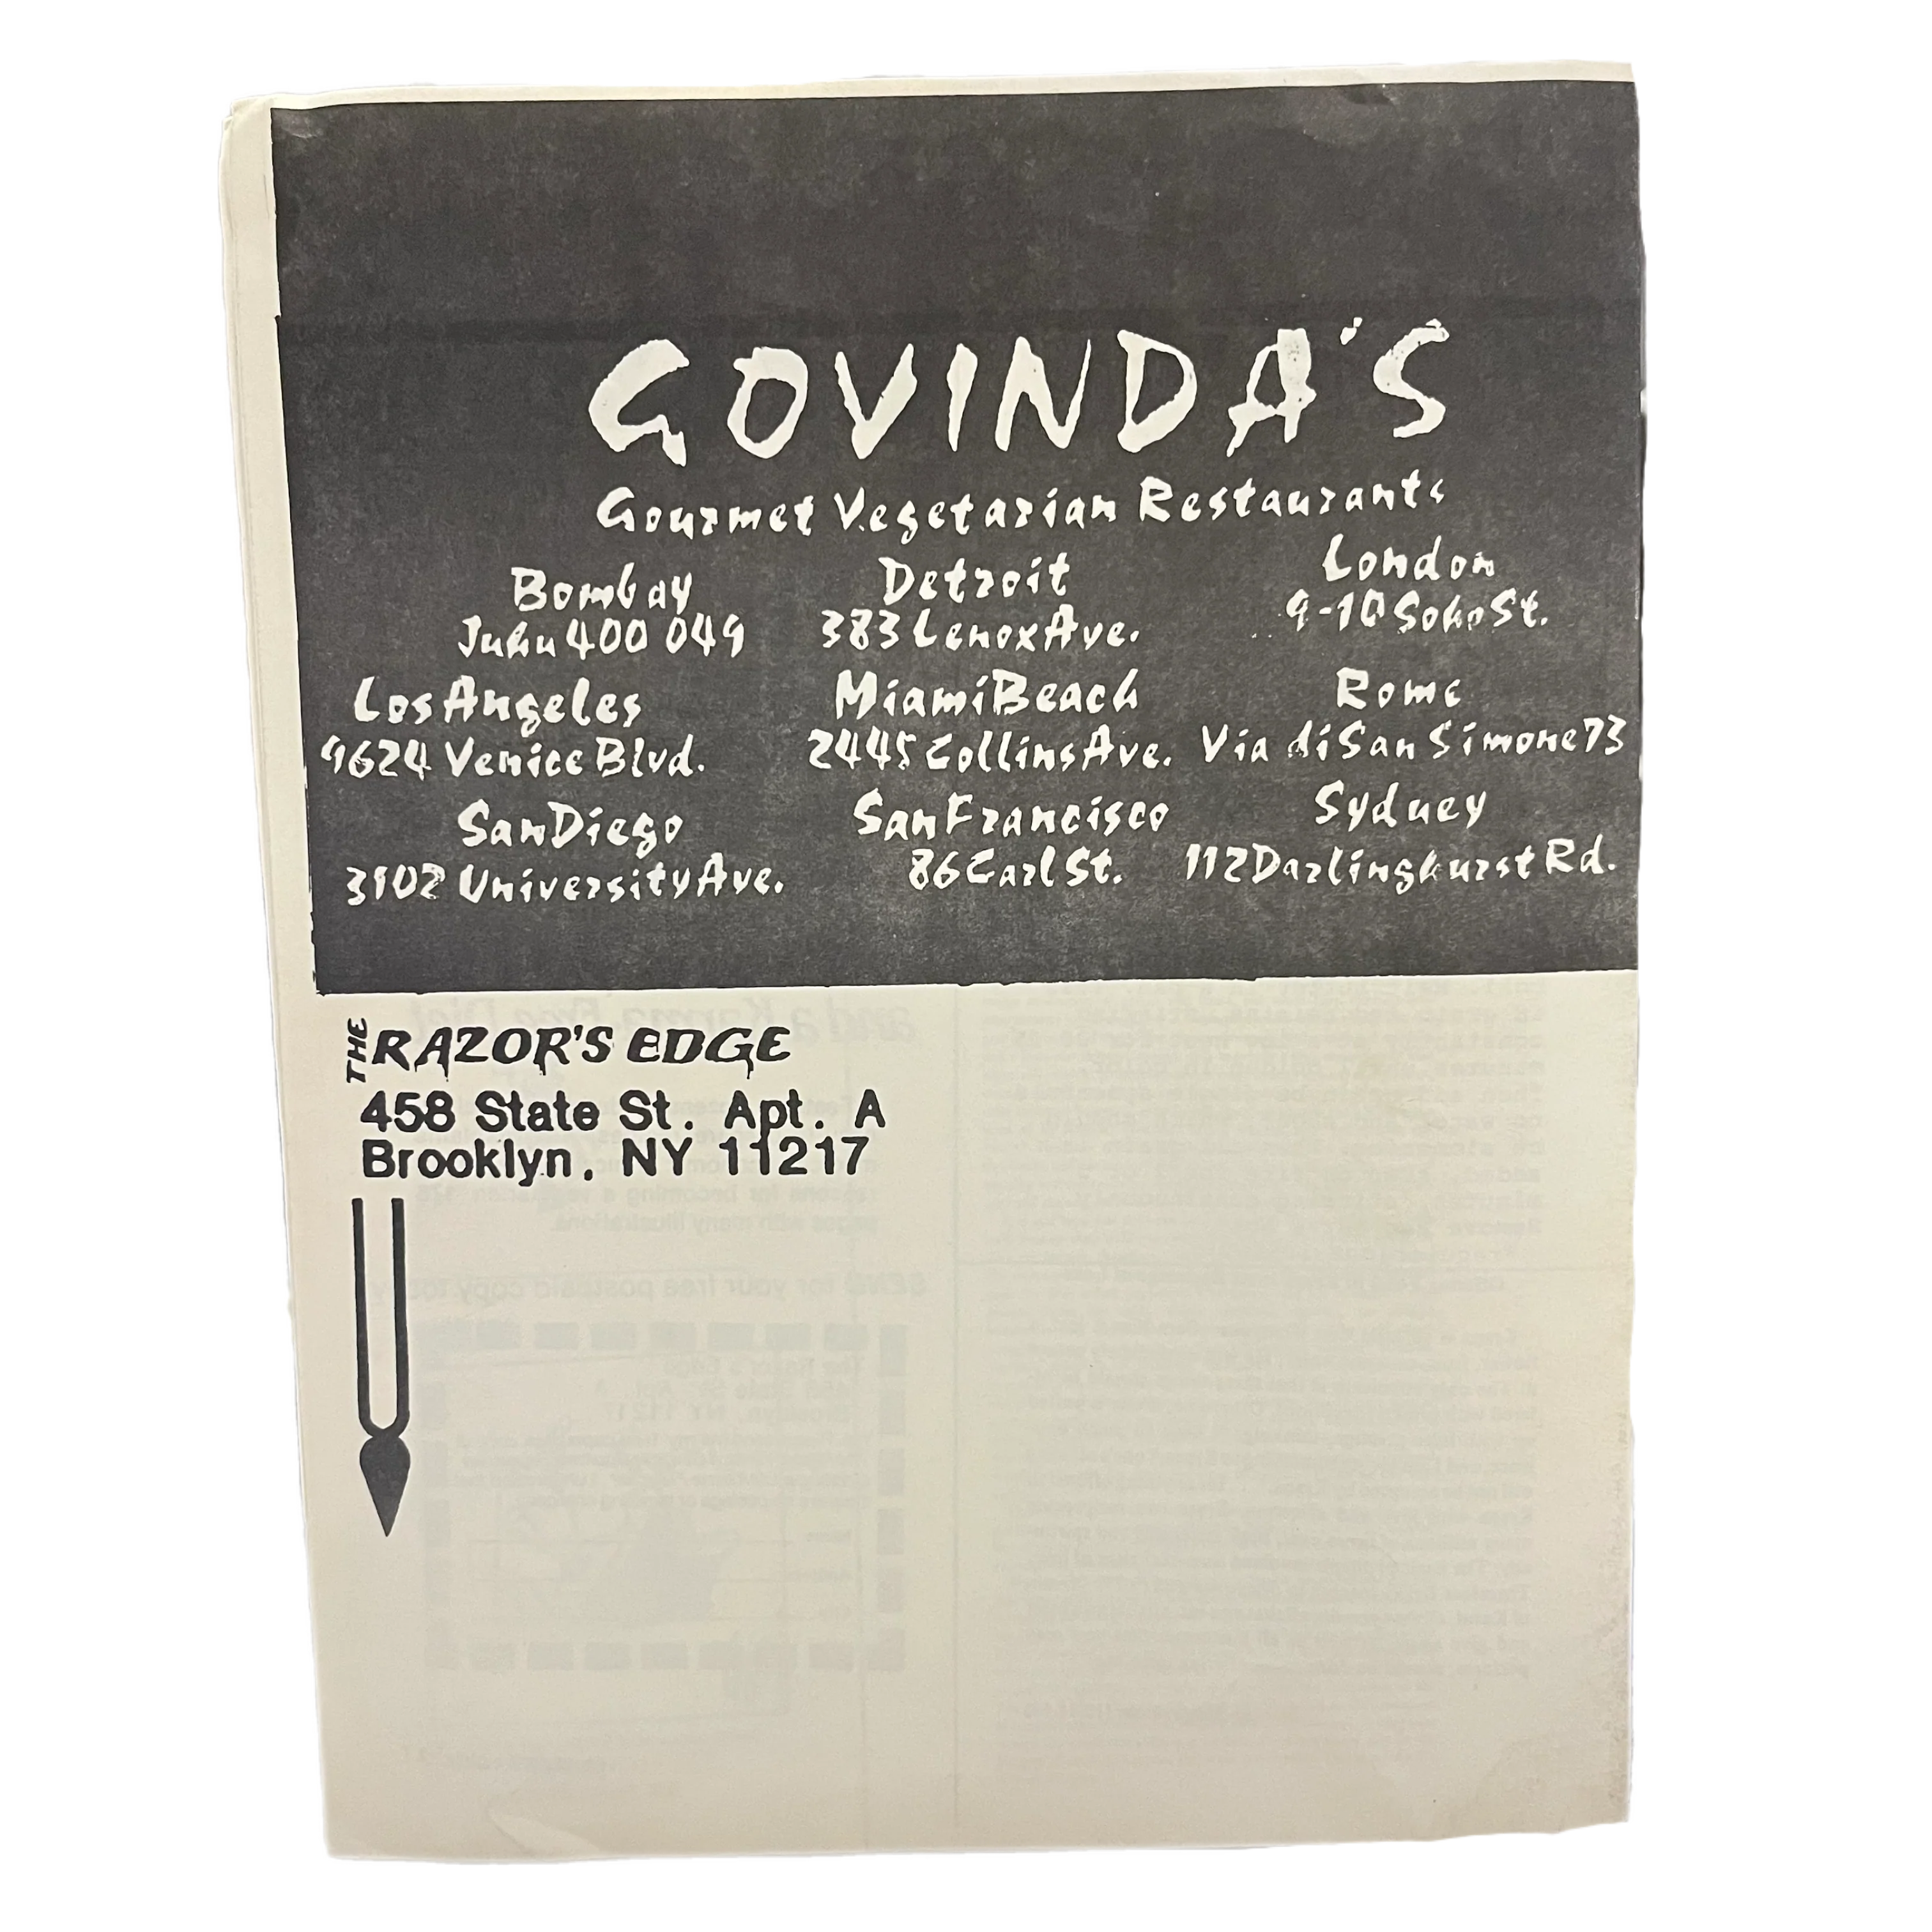 GOVINDA'S
Gourmet Vegetarian Restaurants
Bombay
Juhu 400 049
Detroit
383 Lenox Ave.
London
9-10 Soho St.
Los Angeles
9624 Venice Blvd.
Miami Beach
2445 Collins Ave.
Rome
Via di San Simone 73
San Diego
3102 University Ave.
San Francisco
86 Carl St.
Sydney
112 Darlinghurst Rd.
THE RAZOR'S EDGE
458 State St. Apt. A
Brooklyn, NY 11217